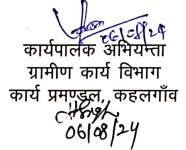 06/08/24
कार्यपालक अभियन्ता
ग्रामीण कार्य विभाग
कार्य प्रमण्डल, कहलगाँव
06/08/24